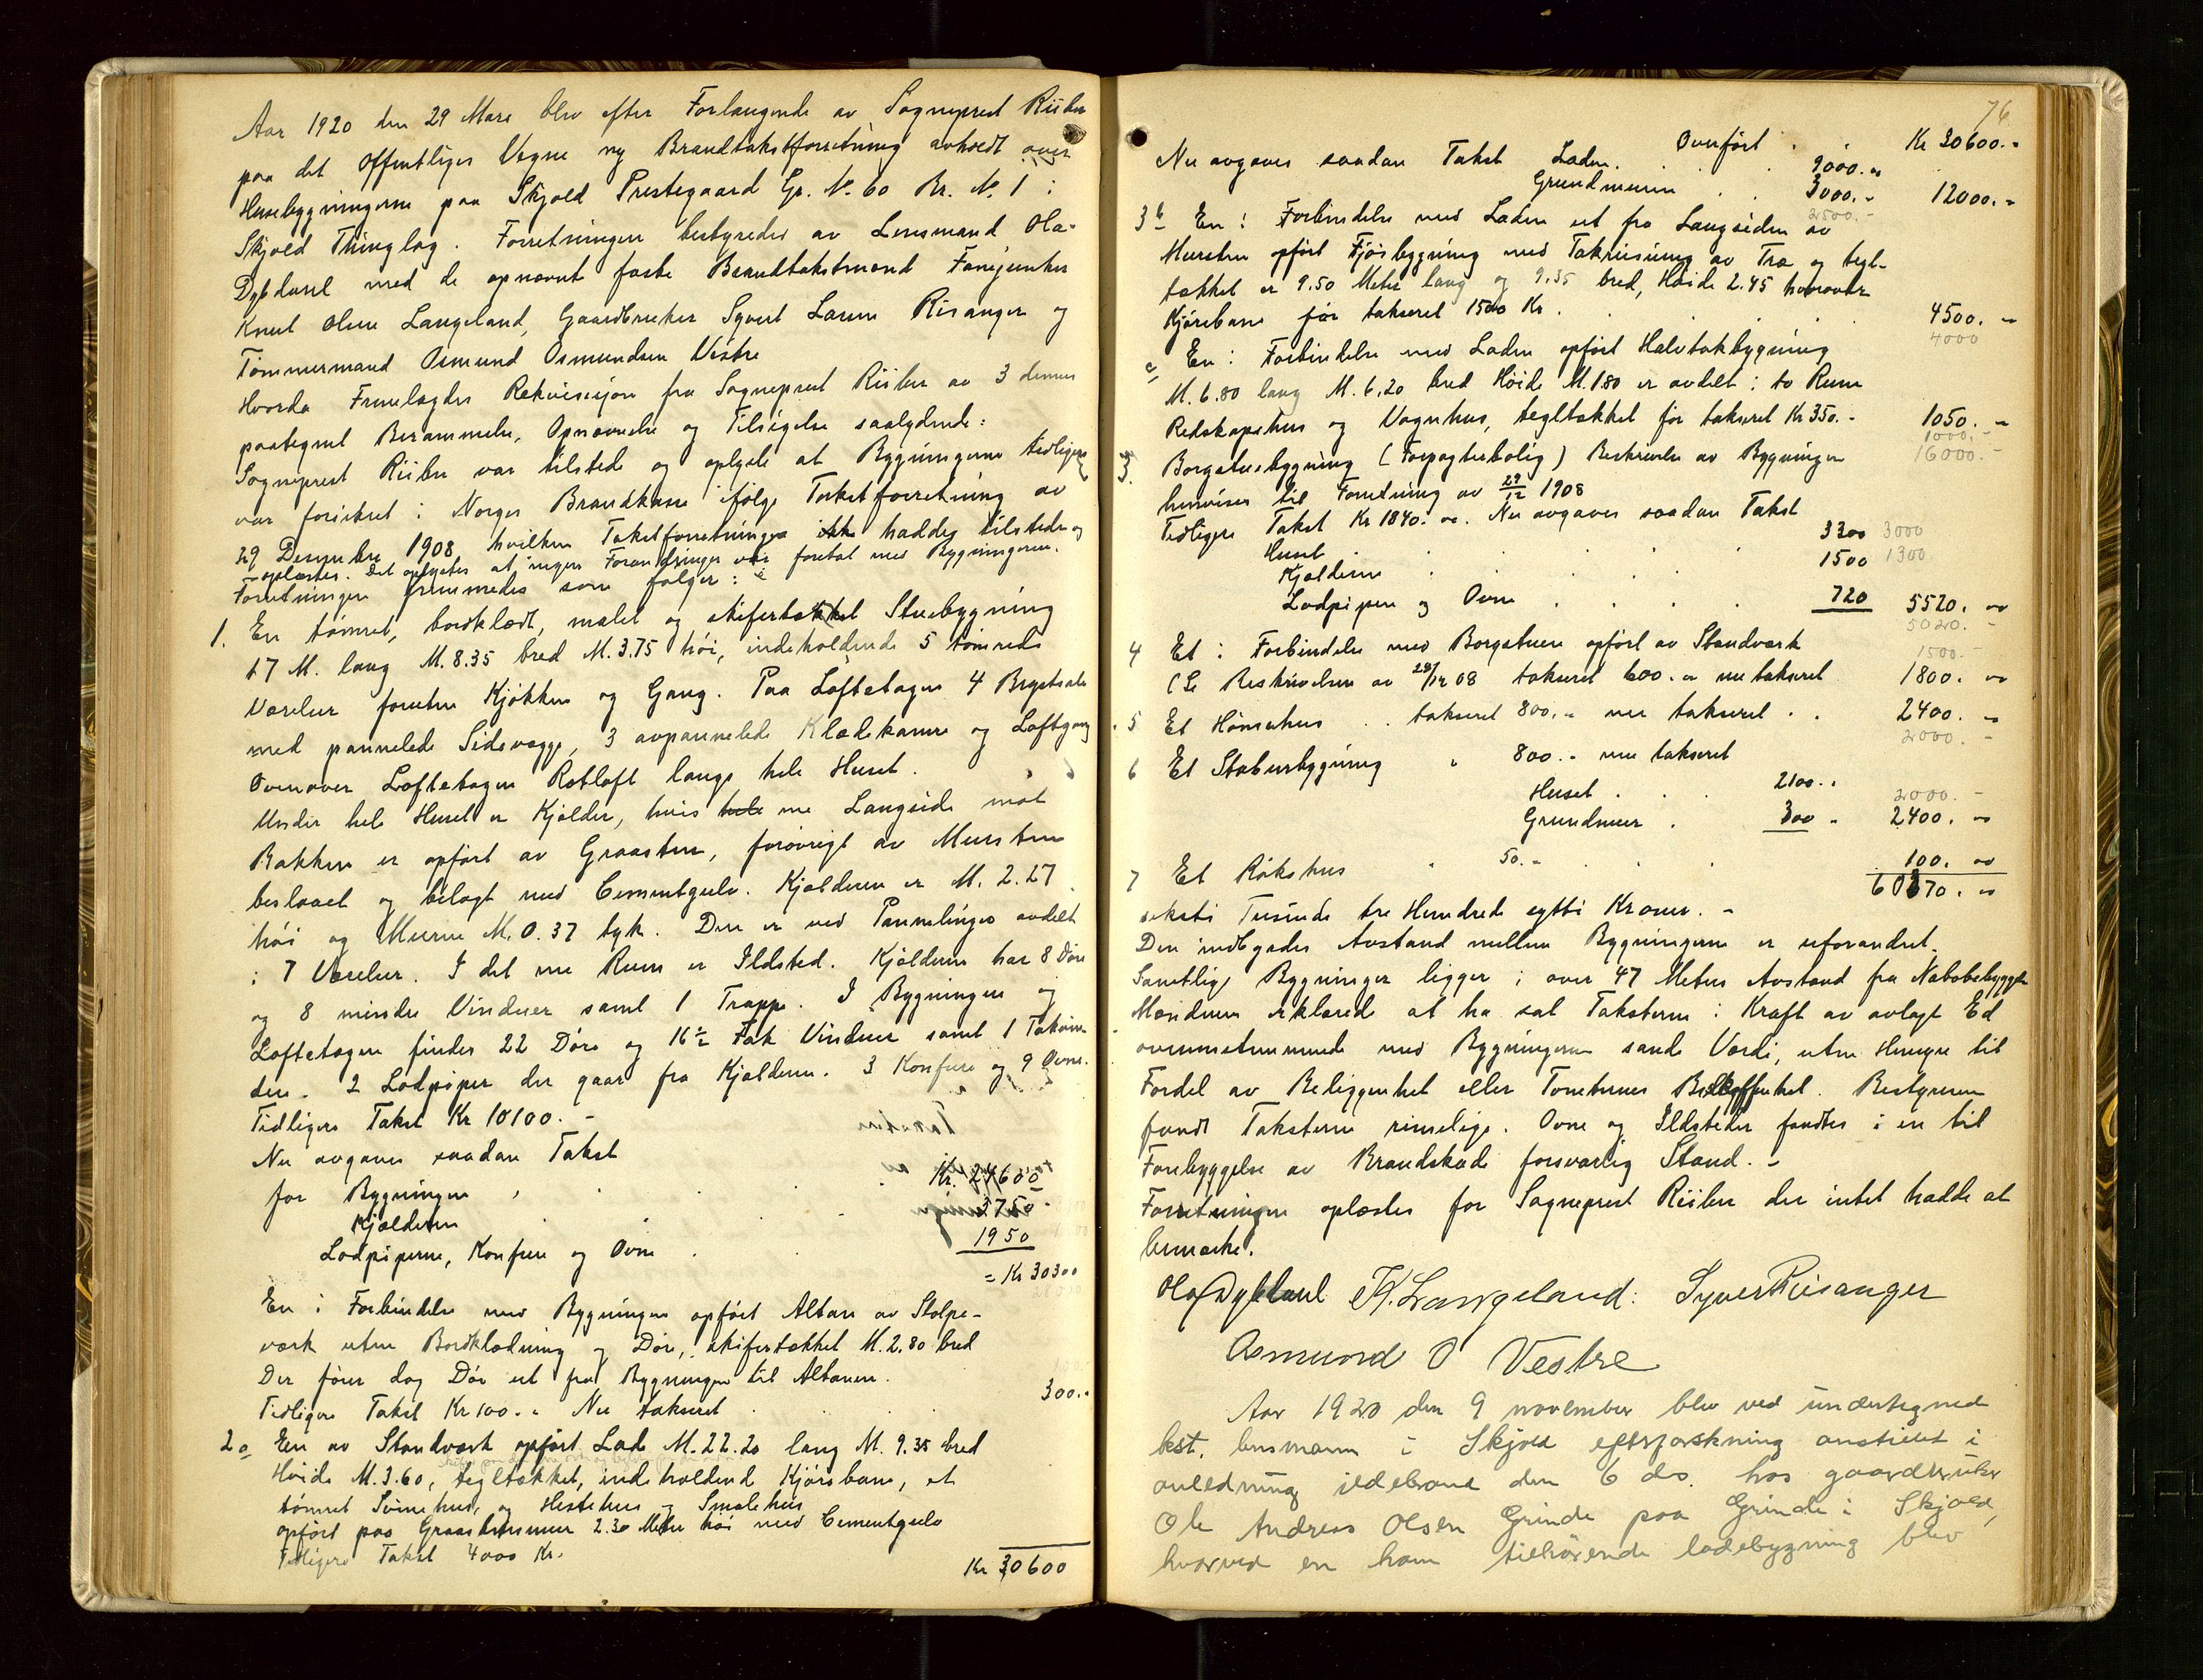 Aar 1920 den 29 Mars blev efter Forlangende av Sogneprest Riiber
paa det Offentliges Vegne ny Brandtakstforretning avholdt over
Husebygningerne paa Skjold Prestegaard Gr. No. 60 Br. No. 1 i
Skjold Thinglag. Forretningen bestyredes av Lensmand Ola-
Dybdaul med de opnævnt faste Brandtakstmænd Fanejunker
Knut Olsen Langeland, Gaardbruker Syvert Larsen Risanger og
Tømmermand Osmund Osmundsen Vestre
Hvorda Fremlagdes Rekvisisjon fra Sogneprest Riiber av 3 dennes
paategnet Berammelse, Opnævnelse og Tilsigelse saalydende:
Sogneprest Riiber var tilstede og oplyste at Bygningerne tidligere
var forsikret i Norges Brandkasse ifølge Takstforretning av
29 Desember 1908, hvilken Takstforretninge ikke haddes tilstede og
oplæstes. Det oplystes at ingen Forandringer var foretat med Bygningerne.
Forretningen fremmedes som følger:
1. En tømret, bordklædt, malet og skifertækket Stuebygning
17 M. lang M. 8.35 bred M. 3.75 høi, indeholdende 5 tømrede
Værelser foruten Kjøkken og Gang. Paa Loftetagen 4 Brystsale
med pannelede Sidevægge, 3 avpannelede Klædekamre og Loftgang
Ovenover Loftetagen Røtloft langs hele Huset.
Under hele Huset er Kjelder, hvis hele ene Langside mot
Bakken er opført av Graasten, forøvrigt av Mursten
beslaaet og belagt med Cementgulv. Kjelderen er M. 2.27
høi og Murene M. 0.37 tyk. Den er ved Pannelinger avdelt
i 7 Værelser. I det ene Rum er Ildsted. Kjelderen har 8 Døre
og 8 mindre Vinduer samt 1 Trappe. I Bygningen og
Loftetagen findes 22 Døre og 16½ Fak Vinduer samt 1 Takvin-
due. 2 Lodpiper der gaar fra Kjelderen. 3 Konfure og 9 Ovne.
Tidligere Takst Kr 10100.-
Nu avgaves saadan Takst
for Bygningen Kr. 24600
Kjelderen 3750
Lodpiperne, Konfure og Ovne 1950
= Kr 30300
En i Forbindelse med Bygningen opført Altan av Stolpe-
værk uten Bordklædning og Døre, skifertækket M. 2.80 bred
Der fører dog Dør ut fra Bygningen til Altanen.
Tidligere Takst Kr 100.- Nu takseret 300.-
2 a En av Standværk opført Lade M. 22.20 lang M. 9.35 bred
Høide M. 3.60, tegltækket, indeholdend Kjørebane, et
tømret Svinehus, og Hestehus og Smalehus
opført paa Graastensmur 2.30 Meter høi med Cementgulv
Tidligere Takst 4000 Kr.
Kr 30600
76
Overført Kr 30600.-
Nu avgaves saadan Takst Laden 9000.-
Grundmuren 3000.- 12000.-
2500.-
3 b En i Forbindelse med Laden ut fra Langsiden av
Mursten opført Fjøsbygning med Takreisning av Træ og tegl-
tækket er 9.50 Meter lang og 9.35 bred, Høide 2.45 hvorover
Kjørebane før takseret 1500 Kr. 4500.-
4000
c En i Forbindelse med Laden opført Halvtakbygning
M. 6.80 lang M. 6.20 bred Høide M. 1.80 er avdelt i to Rum
Redskapshus og Vognhus, tegltækket før takseret Kr 350.- 1050.-
1000.-
16000.-
3. Borgstuebygning (Forpagterbolig) Beskrivelse av Bygningen
henvises til Forretning av 29/12 1908
Tidligere Takst Kr 1840.00. Nu avgaves saadan Takst
Huset 3300 3000
Kjelderen 1500 1300
Lodpipen og Ovne 720 5520.00
5020.-
4 Et i Forbindelse med Borgstuen opført av Standværk 1500.-
(Se Beskrivelsen av 29/12 08 takseret 600.- nu takseret 1800.00
5 Et Hønsehus takseret 800.- nu takseret 2400.-
2000.-
6 Et Stabursbygning " 800.- nu takseret
Huset 2100.- 2000.-
Grundmur 300.- 2400.00
7 Et Røkshus " 50.- 100.00
60370.00
seksti Tusinde tre Hundrede sytti Kroner.-
Den indbyrdes Avstand mellem Bygningerne er uforandret.
Samtlige Bygninger ligger i over 47 Meters Avstand fra Nabobebyggelse
Mændene erklærede at ha sat Taksterne i Kraft av avlagt Ed
overensstemmende med Bygningernes sande Værdi, uten Hensyn til
Fordel av Beliggenhet eller Tomternes Beskaffenhet. Bestyreren
fandt Taksterne rimelige. Ovne og Ildsteder fandtes i en til
Forebyggelse av Brandskade forsvarlig Stand.-
Forretningen oplæstes for Sogneprest Riiber der intet hadde at
bemerke.
Ola Dybdaul K. Langeland. Syver Risanger
Osmund O Vestre
Aar 1920 den 9 november blev ved undertegnede
kst. lensmann i Skjold efterforskning anstillet i
anledning ildebrand den 6 ds. hos gaardbruker
Ole Andreas Olsen Grinde paa Grinde i Skjold,
hvorved en ham tilhørende ladebygning blev